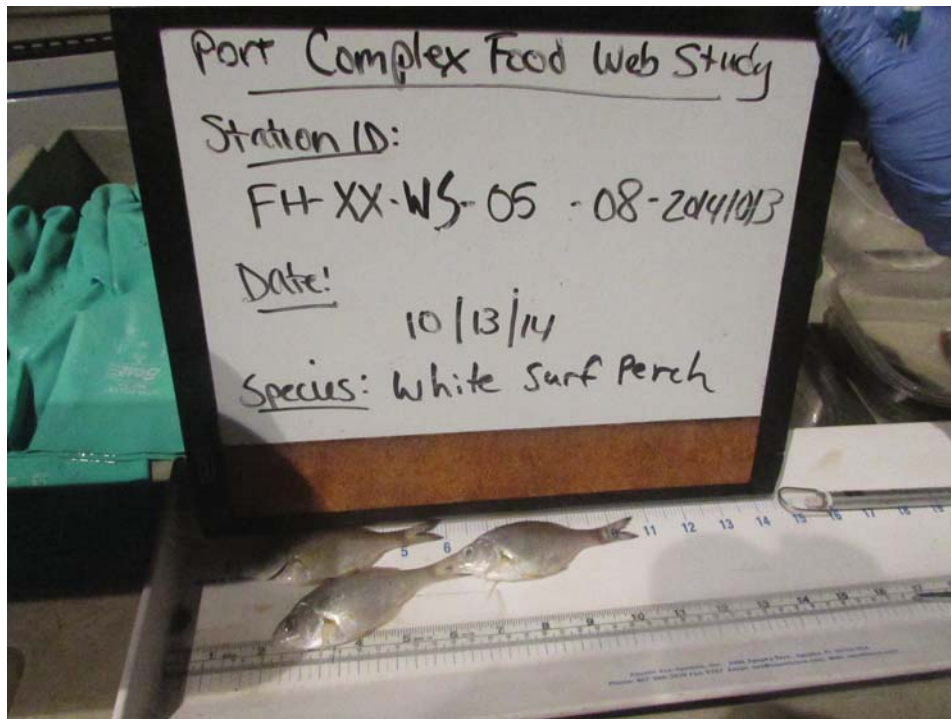 Port Complex Food Web Study
Station ID:
FH-XX-WS-05 -08-20141013
Date:
10/13/14
Species: White Surf Perch
5 6 11 12 13 14 15 16 17 18 19
1 2 4 5 6 7 8 9 10 11 12 13 14 15 16 17